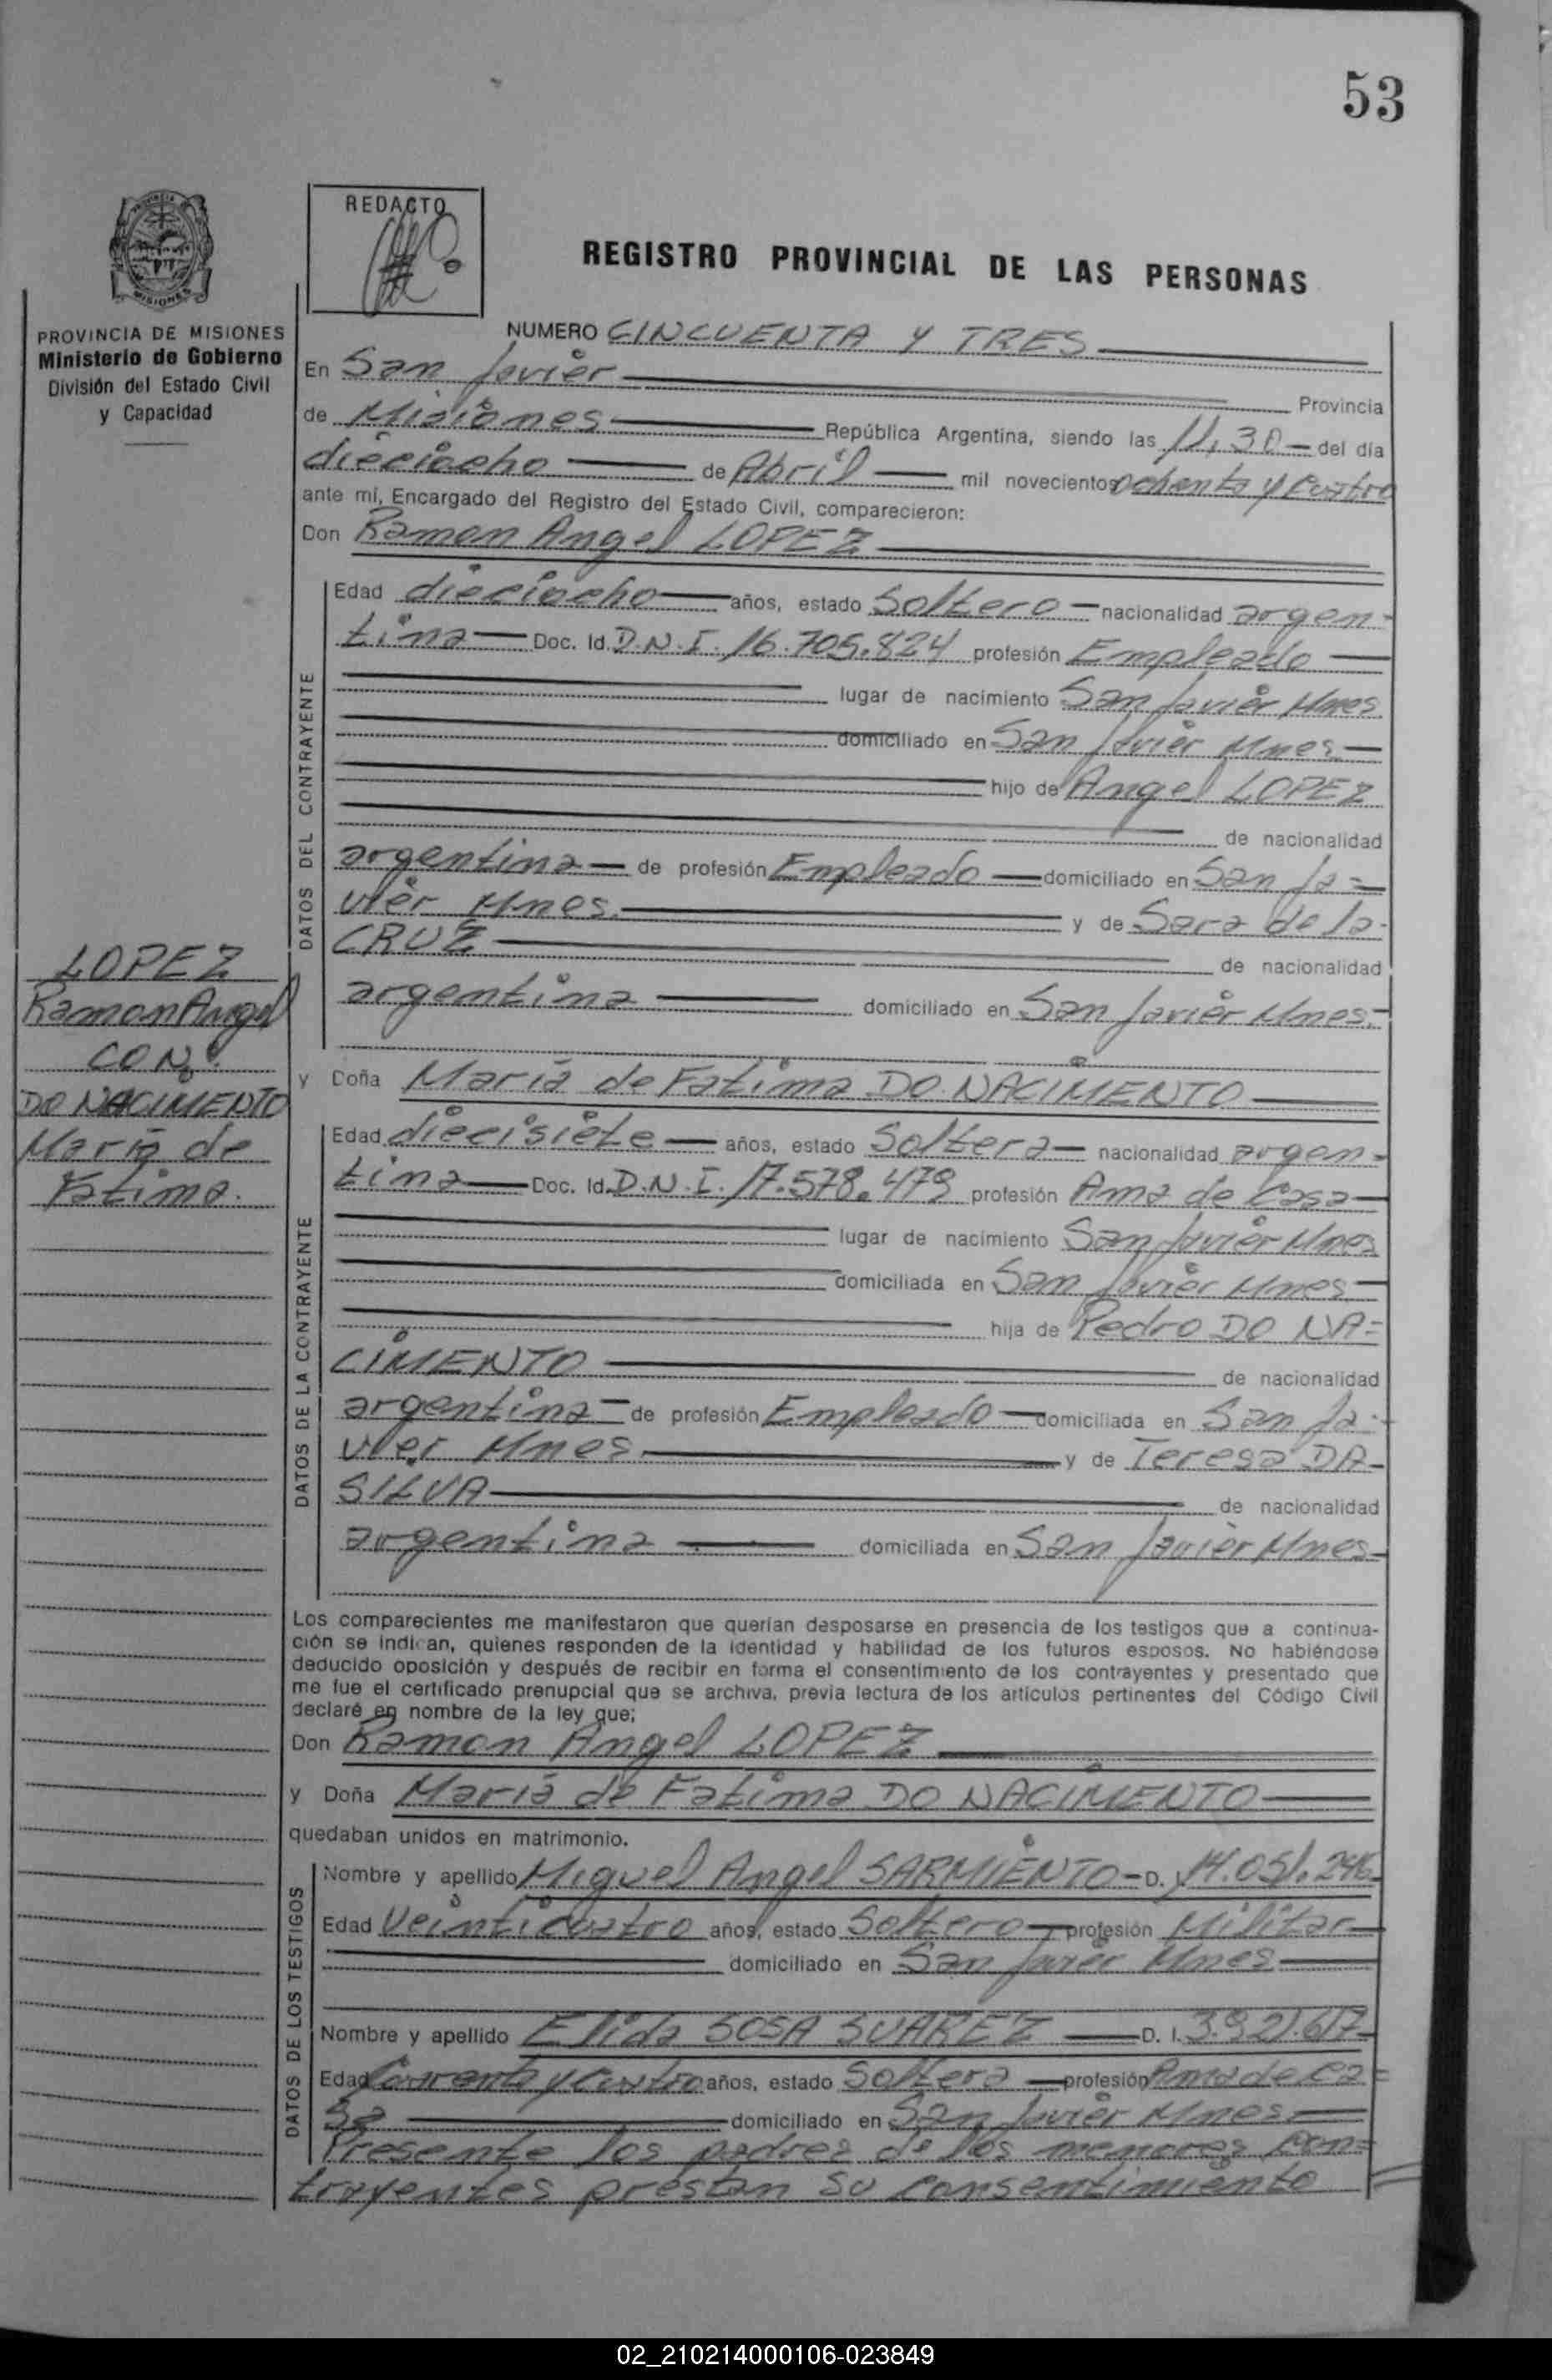 53
REDACTO
REGISTRO PROVINCIAL DE LAS PERSONAS
MISIONES
PROVINCIA DE MISIONES
Ministerio de Gobierno
División del Estado Civil
y Capacidad
NUMERO CINCUENTA Y TRES
En San Javier
Provincia
de Misiones República Argentina, siendo las 11,30 del día
dieciocho de Abril mil novecientos ochenta y cuatro
ante mí, Encargado del Registro del Estado Civil, comparecieron:
Don Ramon Angel LOPEZ
DATOS DEL CONTRAYENTE
Edad dieciocho años, estado Soltero nacionalidad argen-
tina Doc. Id. D.N.I. 16.705.824 profesión Empleado
lugar de nacimiento San Javier Mnes
domiciliado en San Javier Mnes
hijo de Angel LOPEZ
de nacionalidad
argentina de profesión Empleado domiciliado en San Ja=
vier Mnes. y de Sara de la
CRUZ
de nacionalidad
argentina domiciliado en San Javier Mnes.
LOPEZ
Ramon Angel
CON:
DO NACIMENTO
Maria de
Fatima.
y Doña Maria de Fatima DO NACIMENTO
DATOS DE LA CONTRAYENTE
Edad diecisiete años, estado Soltera nacionalidad argen-
tina Doc. Id. D.N.I. 17.578.479 profesión Ama de Casa
lugar de nacimiento San Javier Mnes
domiciliada en San Javier Mnes
hija de Pedro DO NA=
CIMENTO
de nacionalidad
argentina de profesión Empleado domiciliada en San Ja-
vier Mnes. y de Teresa DA
SILVA
de nacionalidad
argentina domiciliada en San Javier Mnes
Los comparecientes me manifestaron que querían desposarse en presencia de los testigos que a continua-
ción se indican, quienes responden de la identidad y habilidad de los futuros esposos. No habiéndose
deducido oposición y después de recibir en forma el consentimiento de los contrayentes y presentado que
me fue el certificado prenupcial que se archiva, previa lectura de los artículos pertinentes del Código Civil
declaré en nombre de la ley que;
Don Ramon Angel LOPEZ
y Doña Maria de Fatima DO NACIMENTO
quedaban unidos en matrimonio.
DATOS DE LOS TESTIGOS
Nombre y apellido Miguel Angel SARMIENTO D. 14.051.246
Edad Veinticuatro años, estado Soltero profesión Militar
domiciliado en San Javier Mnes
Nombre y apellido Elida SOSA SUAREZ D. I. 3.921.617
Edad Cuarenta y Cuatro años, estado Soltera profesión Ama de Ca=
sa domiciliado en San Javier Mnes
Presente los padres de los menores con=
trayentes prestan su consentimiento
02_210214000106-023849